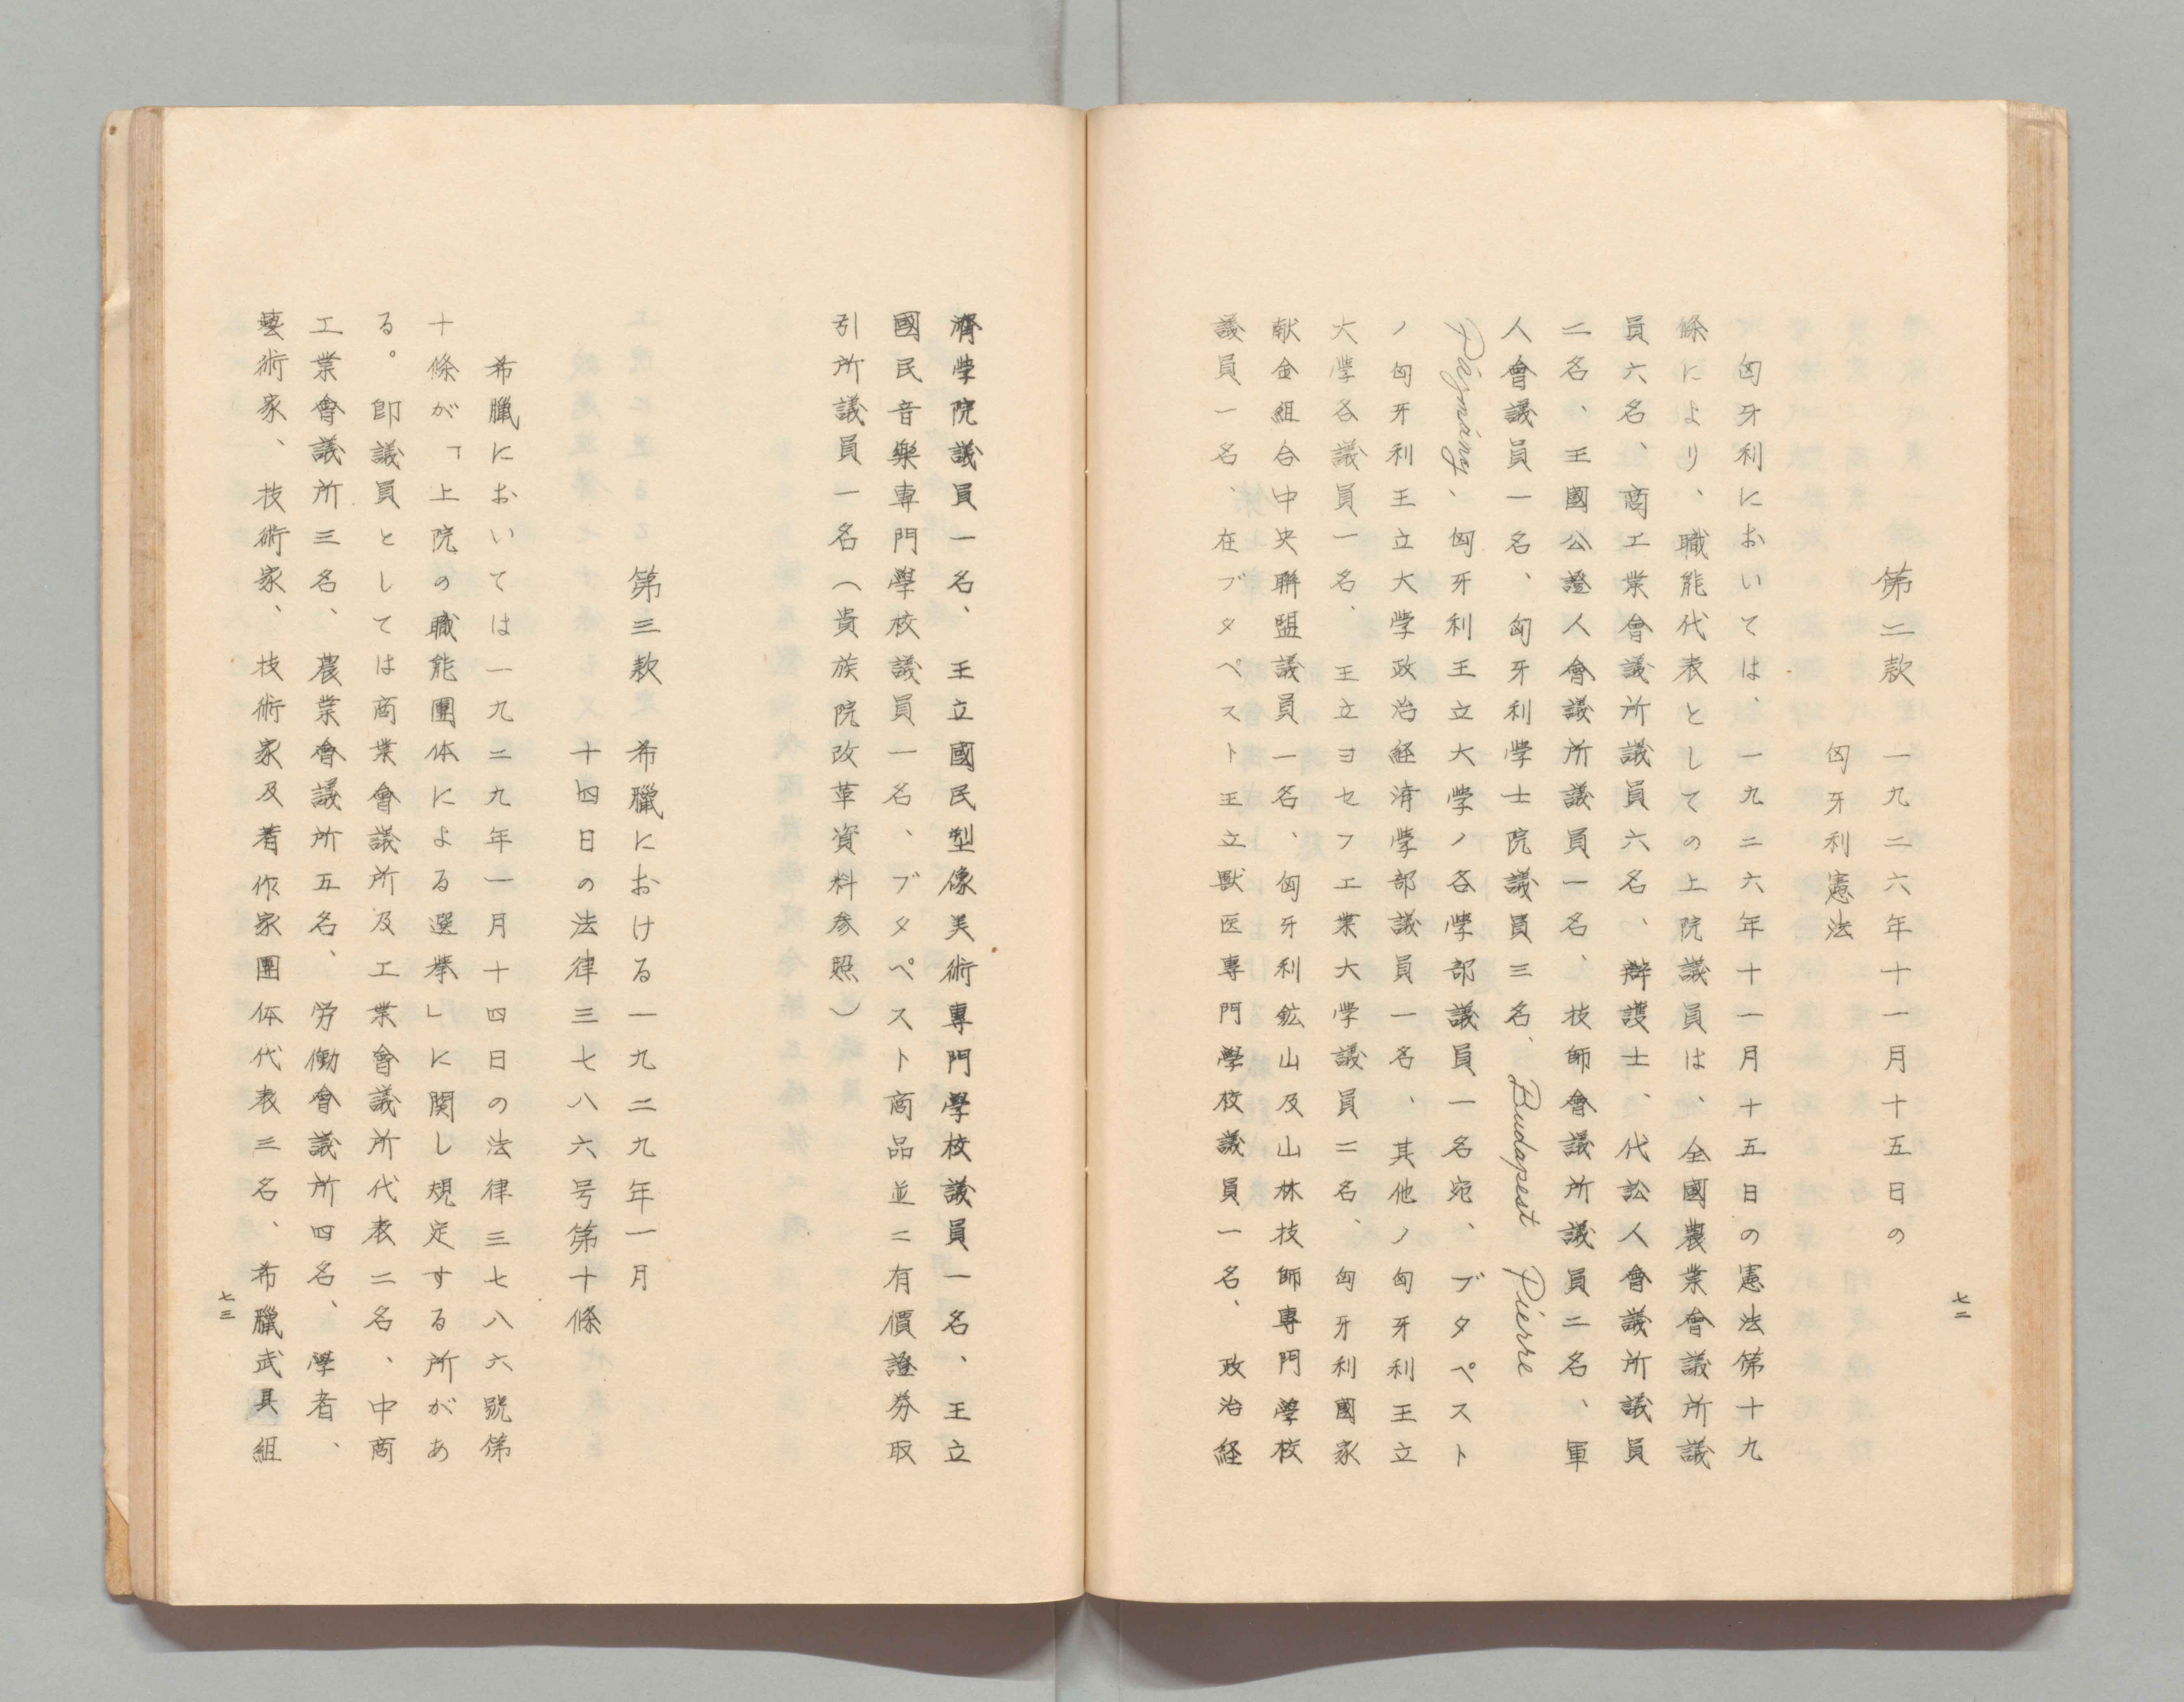 第二款　一九二六年十一月十五日の
匈牙利憲法
匈牙利においては、一九二六年十一月十五日の憲法第十九
條により、職能代表としての上院議員は、全國農業會議所議
員六名、商工業會議所議員六名、辯護士、代訟人會議所議員
二名、王國公證人會議所議員一名、技師會議所議員二名、軍
人會議員一名、匈牙利学士院議員三名、Budapest Pierre
Pázmány、匈牙利王立大学ノ各学部議員一名宛、ブタペスト
ノ匈牙利王立大学政治経済学部議員一名、其他ノ匈牙利王立
大学各議員一名、王立ヨセフ工業大学議員二名、匈牙利國家
献金組合中央聯盟議員一名、匈牙利鉱山及山林技師専門学校
議員一名、在ブタペスト王立獣医專門學校議員一名、政治経
七二
済学院議員一名、王立國民型像美術專門学校議員一名、王立
國民音樂専門學校議員一名、ブタペスト商品並ニ有價證券取
引所議員一名（貴族院改革資料参照）
第三款　希臘における一九二九年一月
十四日の法律三七八六号第十條
希臘においては一九二九年一月十四日の法律三七八六號第
十條が「上院の職能團体による選挙」に関し規定する所があ
る。即議員としては商業會議所及工業會議所代表二名、中商
工業會議所三名、農業會議所五名、労働會議所四名、學者、
藝術家、技術家、技術家及著作家團体代表三名、希臘武具組
七三